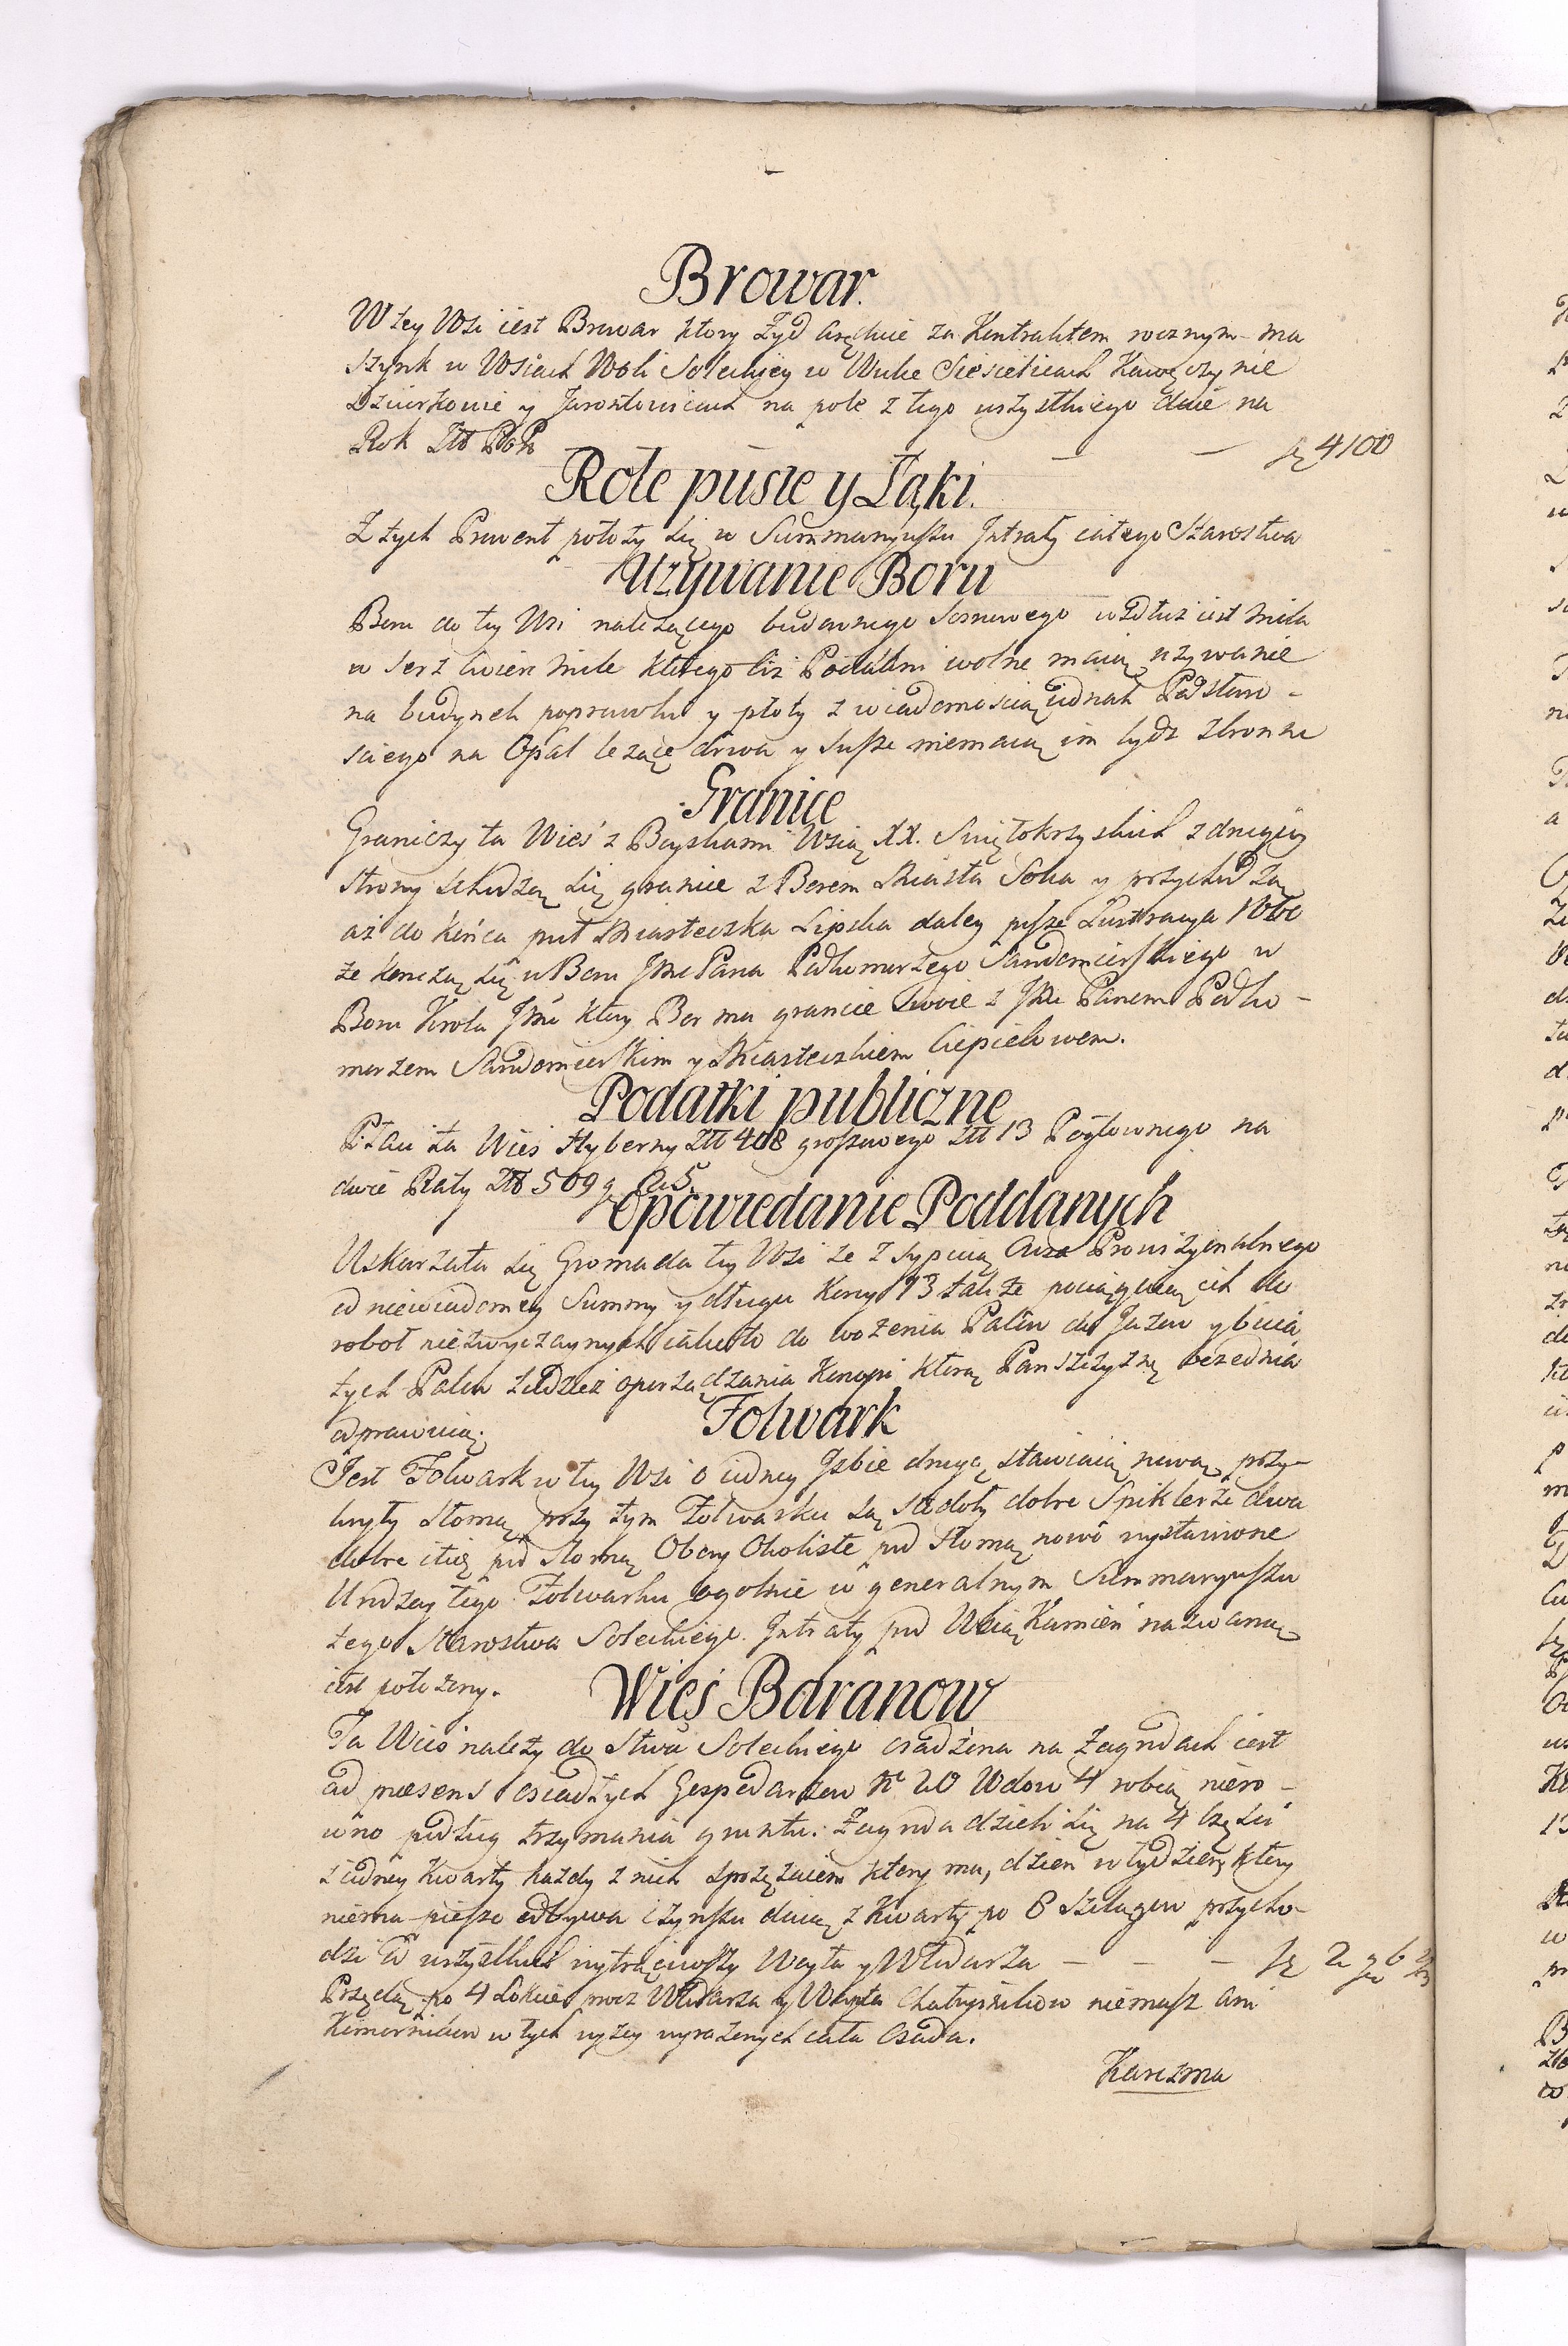 Browar.
W tey Wsi iest Browar ktory Żyd Aręduie za Kontraktem rocznym ma
szynk w Wsiach Woli Soleckiey w Wulce Siesielicach Kawęczynie
Dziurkowie y Jarontowicach na pole z tego wszystkiego daie na
Rok Ztt Pols — — fę 4100
Role puste y Łąki.
Z tych Prowent położy się w Summaryuszu Jntraty całego Starostwa
Uzywanie Boru
Boru do tey Wsi należącego budownego Sosnowego wzdłuż iest mila
w szerz cwierc mile ktorego ciż Poddani wolne maią uzywanie
na budynek poprawki y płoty z wiadomoscią iednak Podstaro-
sciego na Opał leżące drwa y susze niemaią im bydz zbronne
Granice
Graniczy ta Wieś z Boyskami Wsią XX. Swiętokrzyskich z drugiey
strony schodzą się granice z Borem Miasta Solca y przychodzą
aż do końca pul Miasteczka Lipska daley pisze Lustracya 1660
że konczą się w Boru Jmc Pana Podkomorzego Sandomierskiego w
Boru Krola Jmci ktory Bor ma granice swoie z Jmc Panem Podko-
morzem Sandomierskim y Miasteczkiem Ciepielowem.
Podatki publiczne
Płaci ta Wieś Hyberny Ztt 408 groszowego Ztt 13 Pogłownego na
dwie Raty Ztt 509 g 5.
Opowiedanie Poddanych
Uskarzała się Gromada tey Wsi że z sypuią Owsa Prowizyonalnego
od niewiadomey Summy y długu Korcy 13 także pociągaią ich do
robot niezwyczaynych iakoto do wożenia Palów do Jazow y bicia
tych Palow tudzież oporządzania Konopi ktorą Panszczyznę bezednia
odprawuią.
Folwark
Jest Folwark w tey Wsi o iedney Jzbie drugą stawiaią nową, przy-
kryty słomą, przy tym Folwarku są stodoły dobre Spiklerze dwa
dobre itię pod słomą Obory Okoliste pod słomą nowo wystawione
Urodzay tego Folwarku ogolnie w generalnym Summaryuszu
tego Starostwa Soleckiego Jntraty pod Wsią Kamień nazwaną
iest położony.
Wieś Baranow
Ta Wieś należy do Stwa Soleckiego osadzona na Zagrodach iest
ad præsens osiadłych Gospodarzow Nº 20 Wdow 4 robią niero-
wno podług trzymania gruntu. Zagroda dzieli się na 4 części
z iedney kwarty każdy z nich sprzężaiem ktory ma, dzien w tydzien, ktory
niema pieszo odbywa czynszu daią z Kwarty po 8 szelągow przycho-
dzi od wszystkich wytrąciwszy Woyta y Wlodarza — — — fę 2 g 6
Przędą po 4 Łokcie procz Wlodarza y Woyta Chałupnikow niemasz ani
Komornikow w tych wyzey wyrażonych cała Osada.
Karczma